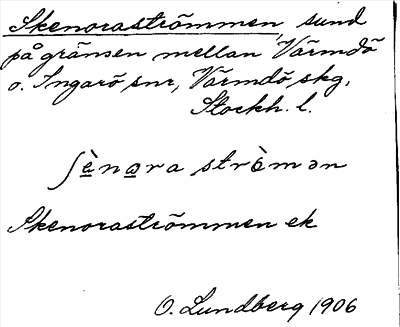 Skenoraströmmen, sund
på gränsen mellan Värmdö
o. Ingarö snr, Värmdö skg,
Stockh. l.
ʃènara strö̀mən
Skenoraströmmen ek
O. Lundberg 1906